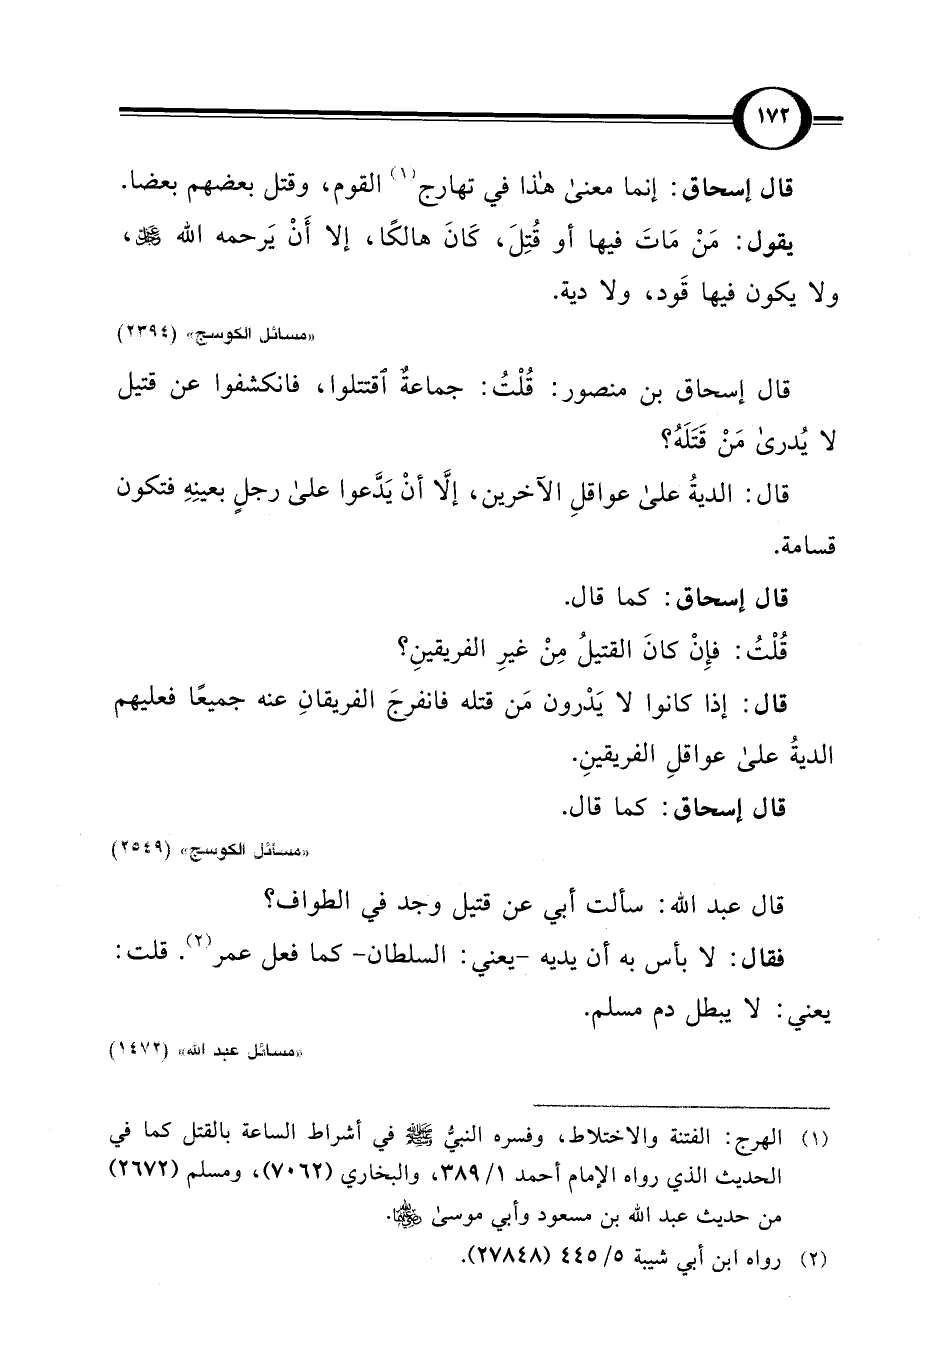 ١٧٢
قال إسحاق: إنما معنىٰ هٰذا في تهارج(١) القوم، وقتل بعضهم بعضا.
يقول: مَنْ مَاتَ فيها أو قُتِلَ، كَانَ هالكًا، إلا أَنْ يَرحمه الله ﷻ،
ولا يكون فيها قَود، ولا دية.
«مسائل الكوسج» (٢٣٩٤)
قال إسحاق بن منصور: قُلْتُ: جماعةٌ ٱقتتلوا، فانكشفوا عن قتيل
لا يُدرىٰ مَنْ قَتَلَهُ؟
قال: الديةُ علىٰ عواقلِ الآخرين، إلَّا أنْ يَدَّعوا علىٰ رجلٍ بعينِهِ فتكون
قسامة.
قال إسحاق: كما قال.
قُلْتُ: فإِنْ كانَ القتيلُ مِنْ غيرِ الفريقينِ؟
قال: إذا كانوا لا يَدْرون مَن قتله فانفرجَ الفريقانِ عنه جميعًا فعليهم
الديةُ علىٰ عواقلِ الفريقينِ.
قال إسحاق: كما قال.
«مسائل الكوسج» (٢٥٤٩)
قال عبد الله: سألت أبي عن قتيل وجد في الطواف؟
فقال: لا بأس به أن يديه -يعني: السلطان- كما فعل عمر(٢). قلت:
يعني: لا يبطل دم مسلم.
«مسائل عبد الله» (١٤٧٢)
(١) الهرج: الفتنة والاختلاط، وفسره النبيُّ ﷺ في أشراط الساعة بالقتل كما في
الحديث الذي رواه الإمام أحمد ١/ ٣٨٩، والبخاري (٧٠٦٢)، ومسلم (٢٦٧٢)
من حديث عبد الله بن مسعود وأبي موسىٰ رضي الله عنهما.
(٢) رواه ابن أبي شيبة ٥/ ٤٤٥ (٢٧٨٤٨).